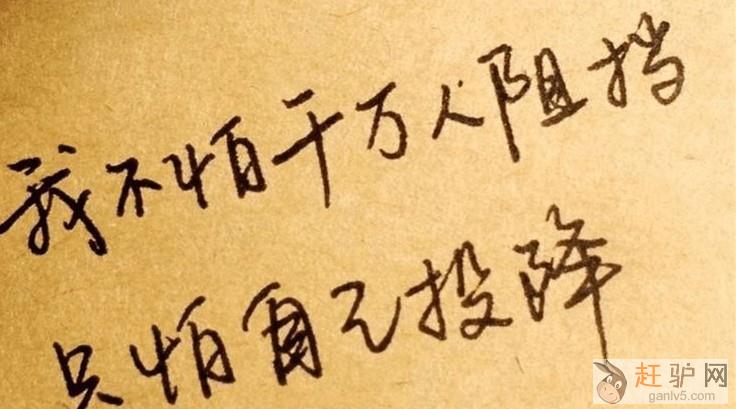 我不怕千万人阻挡
只怕自己投降
赶驴网
ganlv5.com